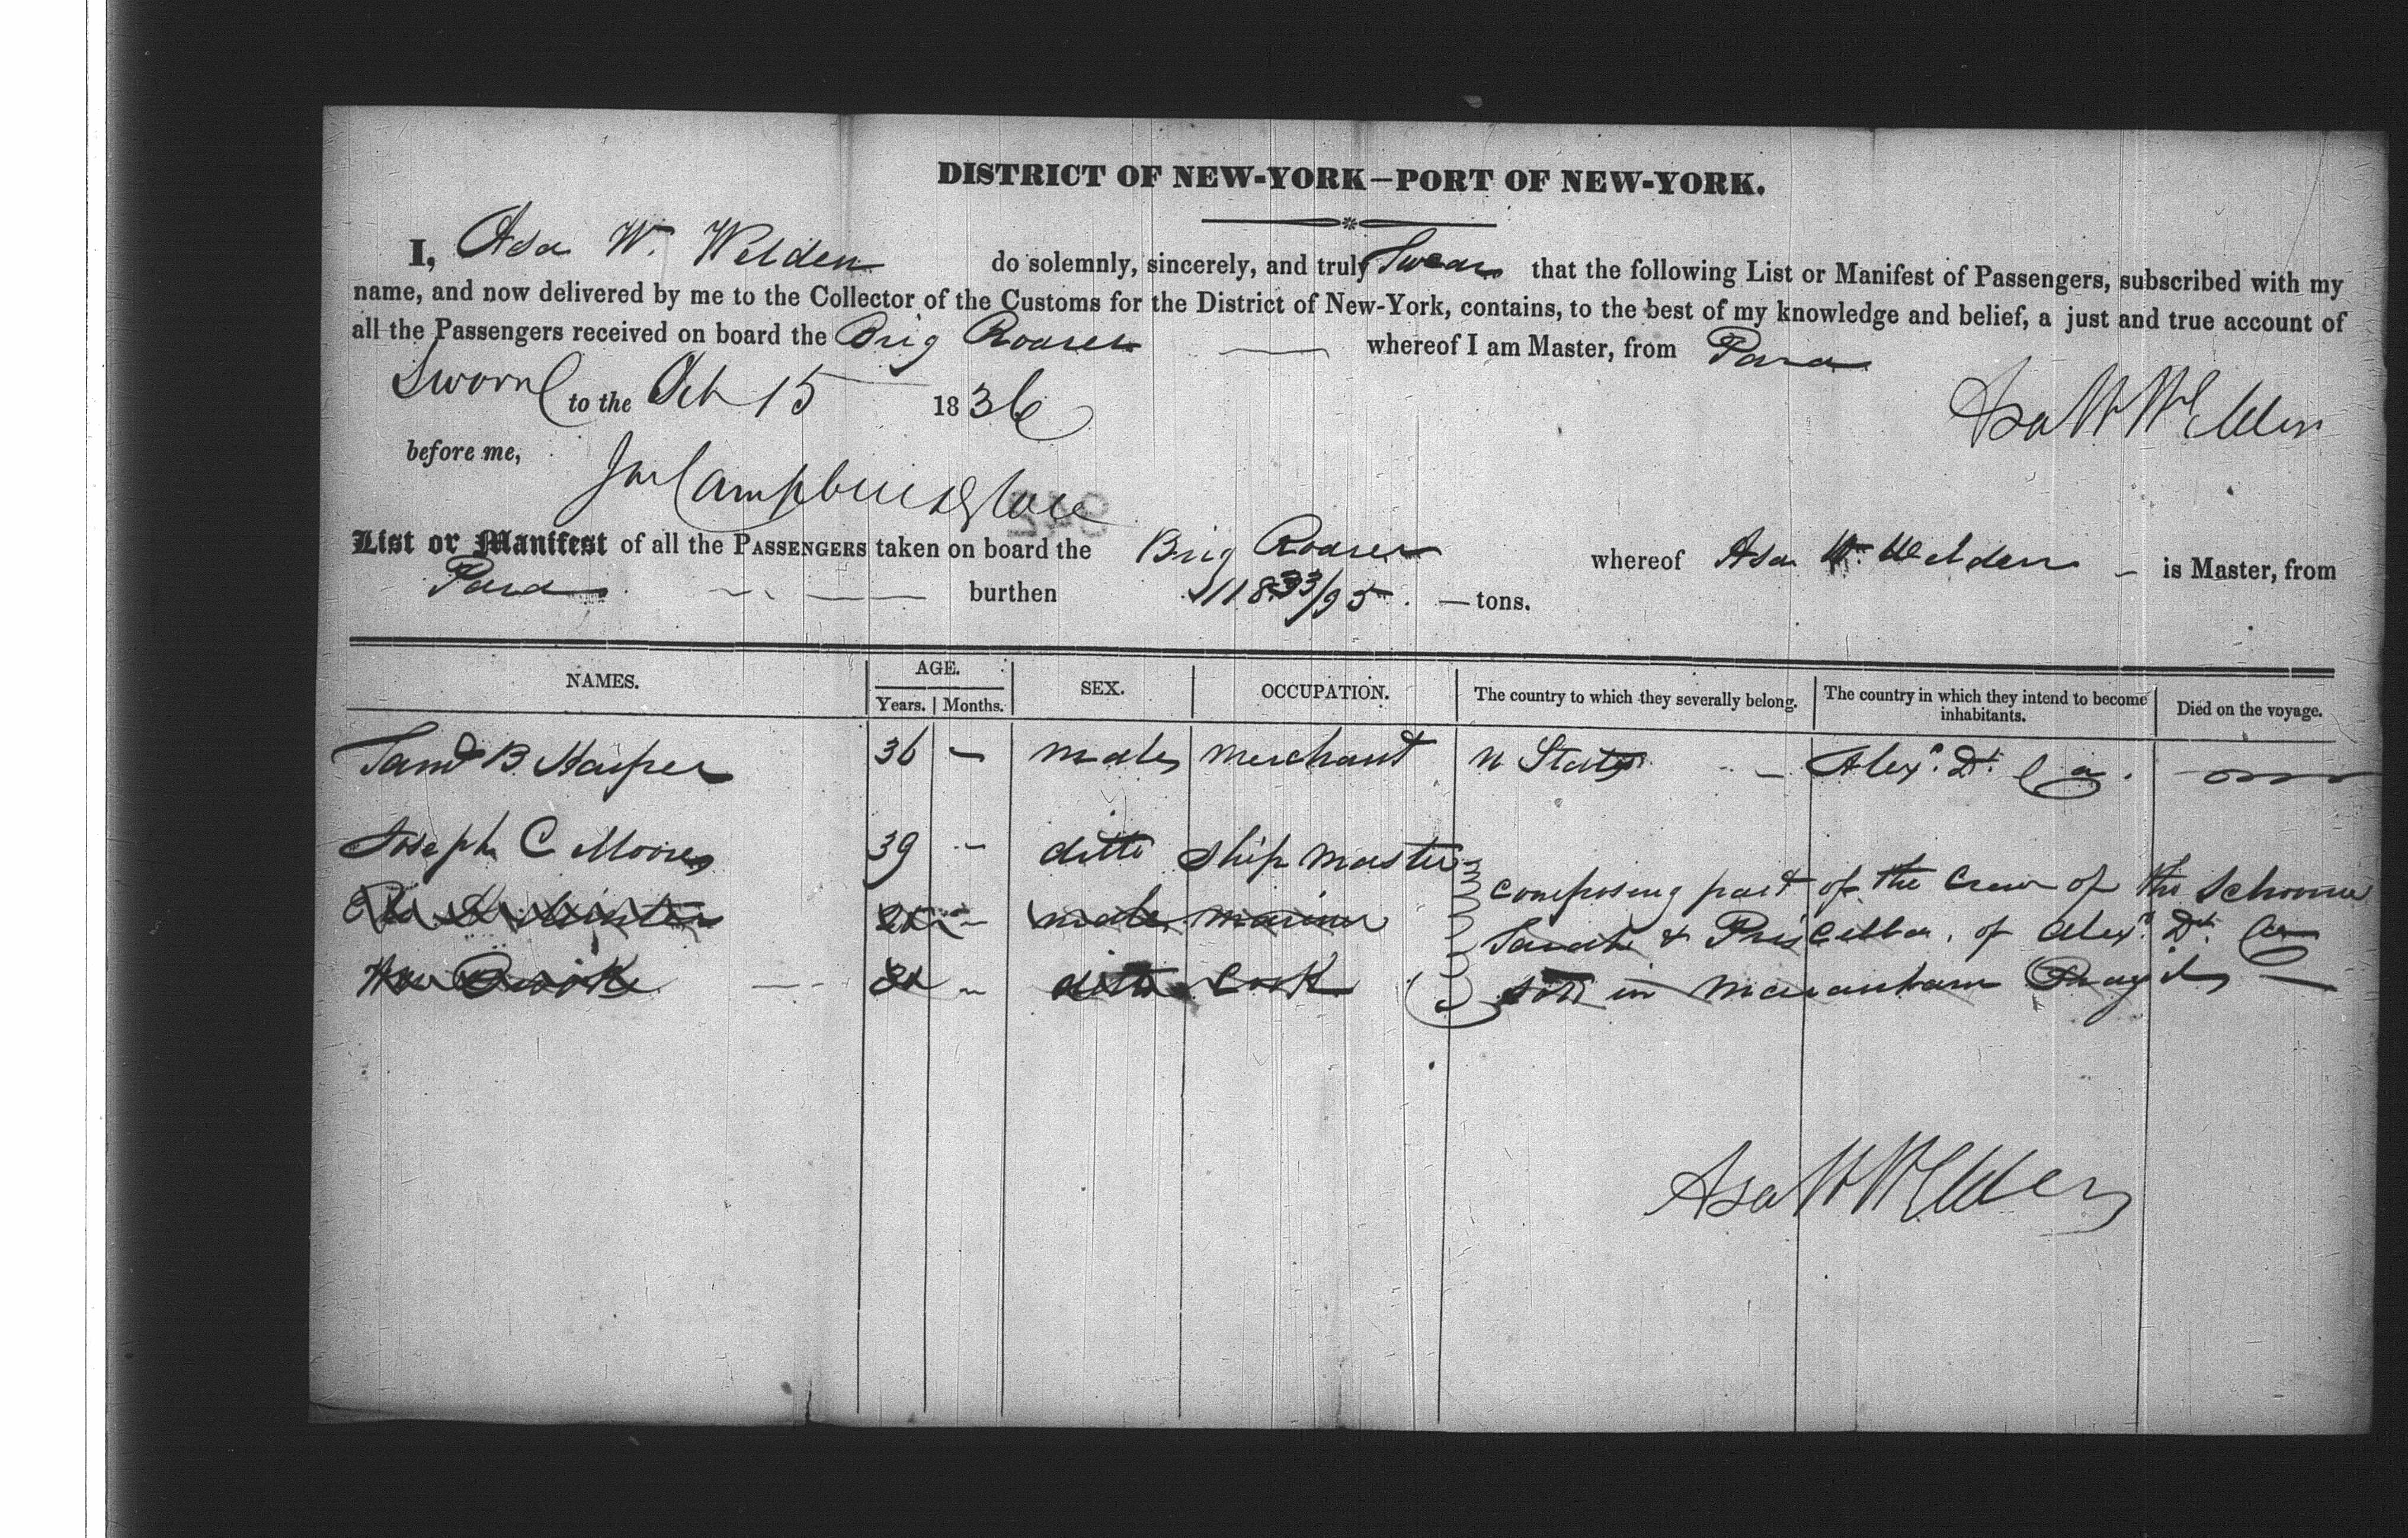 DISTRICT OF NEW-YORK—PORT OF NEW-YORK.
I, Asa W. Welden do solemnly, sincerely, and truly Swear that the following List or Manifest of Passengers, subscribed with my
name, and now delivered by me to the Collector of the Customs for the District of New-York, contains, to the best of my knowledge and belief, a just and true account of
all the Passengers received on board the Brig Roarer whereof I am Master, from Para
Sworn to the Oct 15 1836 Asa W Welden
before me,
List or Manifest of all the PASSENGERS taken on board the Brig Roarer whereof Asa W. Welden is Master, from
Para burthen 118 33/95 tons.
NAMES. AGE. SEX. OCCUPATION. The country to which they severally belong. The country in which they intend to become inhabitants. Died on the voyage.
Years. Months.
Saml B. Harper 36 – male merchant U States – Alexa. Dt. Ca.
Joseph C Moore 39 – ditto ship master
composing part of the Crew of the Schooner
male mariner Sarah & Priscilla, of Alexa. Dt. Ca
Wm ditto Cook sold in Maranham
Asa W Welden